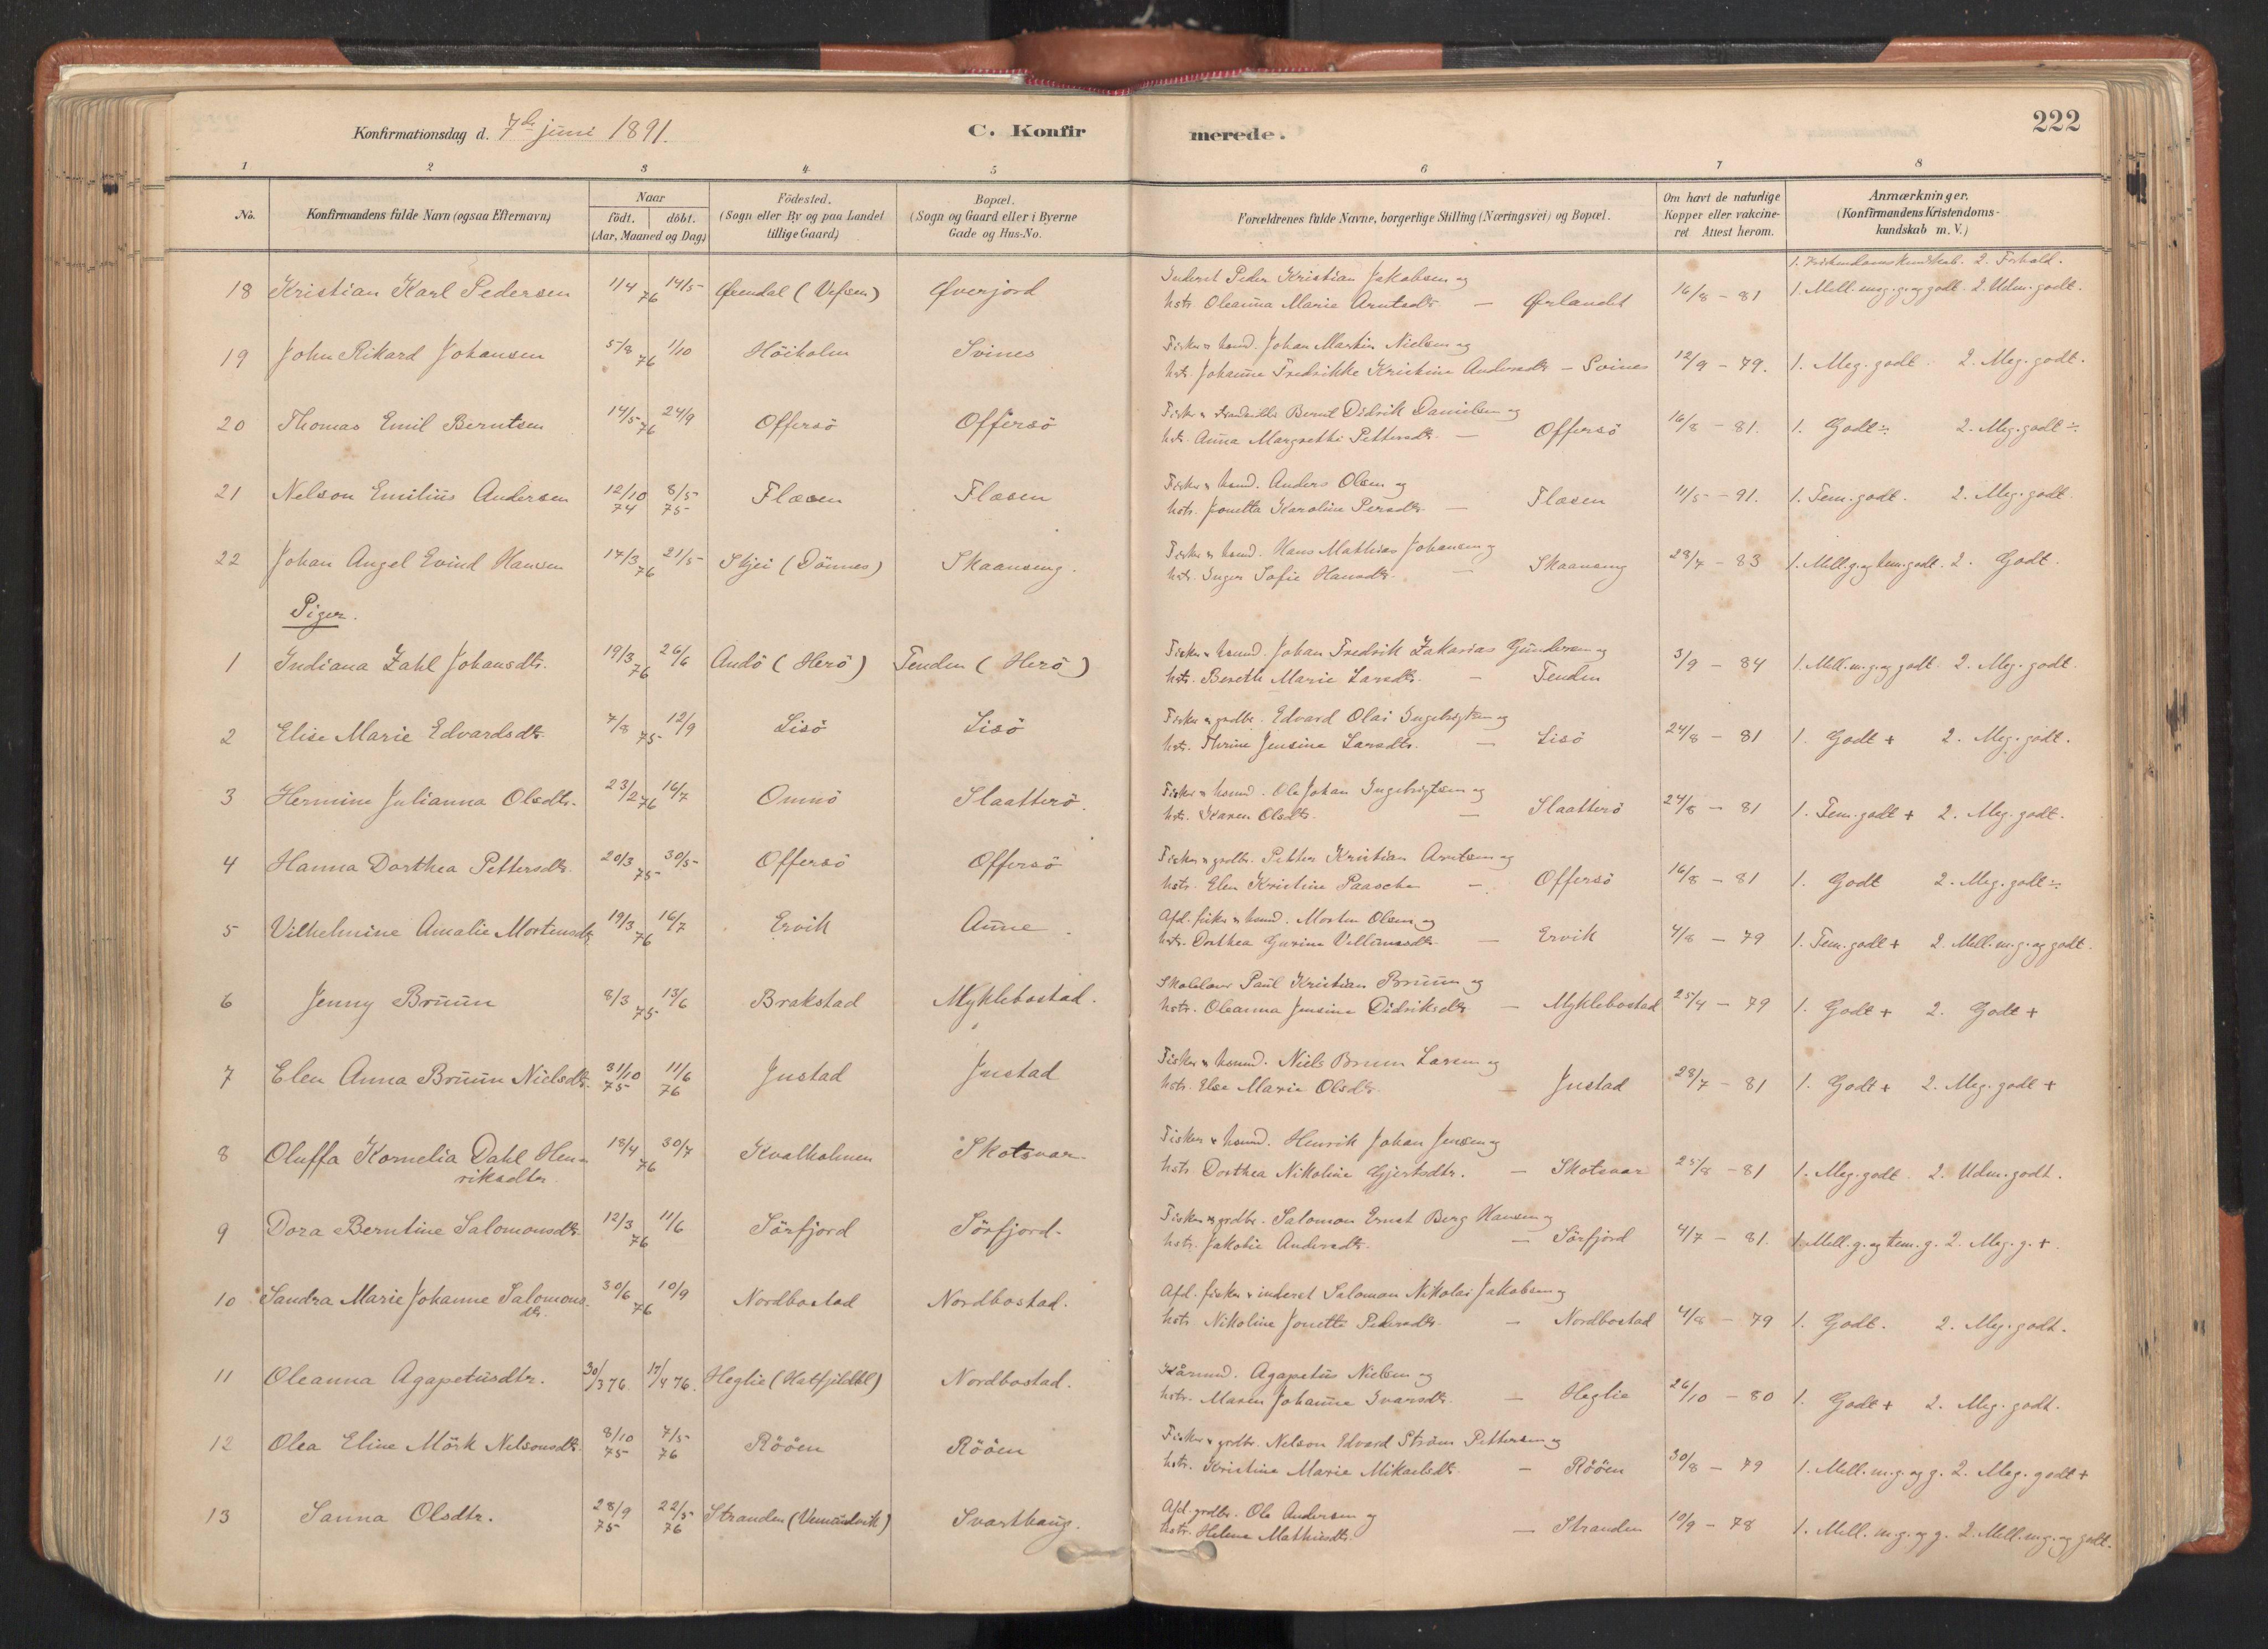 Konfirmationsdag d. 7de juni 1891.
C. Konfirmerede.
222
1 2 3 4 5 6 7 8
No.
Konfirmandens fulde Navn (ogsaa Efternavn)
Naar
födt. döbt.
(Aar, Maaned og Dag)
Födested.
(Sogn eller By og paa Landet
tillige Gaard)
Bopæl.
(Sogn og Gaard eller i Byerne
Gade og Hus-No.
Forældrenes fulde Navne, borgerlige Stilling (Næringsvei) og Bopæl.
Om havt de naturlige
Kopper eller vakcine-
ret Attest herom.
Anmærkninger.
(Konfirmandens Kristendoms-
kundskab m. V.)
1. Kristendomskundskab. 2. Forhold.
18 Kristian Karl Pedersen 11/4 76 14/5 (Vefsen) Øverjord
Inderst Peder Kristian Jakobsen og
hstr. Oleanna Marie Arntsdtr. — Ørlandet 16/8 - 81 1. Mell. meg. g. og godt. 2. Udm. godt.
19 John Rikard Johansen 5/8 76 1/10 Höiholm Svines
Fisker & hsmd. Johan Martin Nielsen og
hstr. Johanne Fredrikke Kristine Andersdtr. — Svines 12/9 - 79. 1. Meg. godt. 2. Meg. godt.
20 Thomas Emil Berntsen 14/5 76 24/9 Offersö Offersö
Fisker & Bernt Didrik Danielsen og
hstr. Anna Margrethe Pettersdtr. — Offersö 16/8 - 81. 1. Godt ÷ 2. Meg. godt ÷
21 Nelson Emilius Andersen 12/10 74 8/5 75 Flæsen Flæsen
Fisker & hsmd. Anders Olsen og
hstr. Jonetta Karoline Persdtr. — Flæsen 11/5 - 91. 1. Tem. godt. 2. Meg. godt.
22 Johan Angel Evind Hansen 17/3 76 21/5 Skjei (Dönnes) Skaanseng.
Fisker & hsmd. Hans Mathias Johansen og
hstr. Inger Sofie Hansdtr. — Skaanseng 28/7 - 83 1. Mell. g. og tem. godt. 2. Godt.
Piger.
1 Indiana Zahl Johansdtr. 19/3 76 26/6 Andö (Herö) Tenden (Herö)
Fisker & hsmd. Johan Fredrik Zakarias Gundersen og
hstr. Bereth Marie Larsdtr. — Tenden 3/9 - 84 1. Mell. m. g. og godt. 2. Meg. godt.
2 Elise Marie Edvardsdtr. 7/8 75 12/9 Lisö Lisö
Fisker & grdbr. Edvard Olai Ingebrigtsen og
hstr. Thrine Jensine Larsdtr. — Lisö 24/8 - 81 1. Godt + 2. Meg. godt.
3 Hermine Julianna Olsdtr. 23/2 76 16/7 Omnö Slaatterö.
Fisker & hsmd. Ole Johan Ingebrigtsen og
hstr. Karen Olsdtr. — Slaatterö 24/8 - 81 1. Tem. godt + 2. Meg. godt.
4 Hanna Dorthea Pettersdtr. 20/3 75 30/5 Offersö Offersö
Fisker & grdbr. Petter Kristian Arntsen og
hstr. Elen Kristine Paasche — Offersö 16/8 - 81 1. Godt 2. Meg. godt ÷
5 Vilhelmine Amalie Mortensdtr. 19/3 76 16/7 Ervik Aune.
Afd. fisker & hsmd. Morten Olsen og
hstr. Dorthea Gurine Villumsdtr. — Ervik 4/8 - 79 1. Tem. godt + 2. Mell. m. g. og godt.
6 Jenny Bruun 8/3 75 13/6 Brakstad Myklebostad.
Skolelærer Paul Kristian Bruun og
hstr. Oleanna Jensine Didriksdtr. — Myklebostad 25/4 - 79 1. Godt + 2. Godt +
7 Elen Anna Bruun Nielsdtr. 31/10 75 11/6 76 Justad Justad
Fisker & hsmd. Niels Bruun Larsen og
hstr. Else Marie Olsdtr. — Justad 28/7 - 81 1. Godt + 2. Meg. godt +
8 Oluffa Kornelia Dahl Hen-
riksdtr. 18/4 76 30/7 Kvalholmen Skotsvær.
Fisker & hsmd. Henrik Johan Jensen og
hstr. Dorthea Nikoline Gjertsdtr. — Skotsvær 25/8 - 81 1. Meg. godt. 2. Udm. godt.
9 Dora Berntine Salomonsdtr. 12/3 76 11/6 Sörfjord Sörfjord.
Fisker & grdbr. Salomon Ernst Berg Hansen og
hstr. Jakobie Andersdtr. — Sörfjord 4/7 - 81. 1. Mell. g. og tem. g. 2. Meg. g. +.
10 Sandra Marie Johanne Salomons-
dtr. 30/6 76 10/9 Nordbostad Nordbostad.
Afd. fisker & inderst Salomon Nikolai Jakobsen og
hstr. Nikoline Jonette Pedersdtr. — Nordbostad 4/8 - 79 1. Godt. 2. Meg. godt.
11 Oleanna Agapetusdtr. 30/3 76. 17/4 76. Heglie (Hatfjelddl) Nordbostad.
Agapetus Nielsen og
hstr. Maren Johanne Ivarsdtr. — Heglie 26/10 - 80 1. Godt + 2. Meg. godt.
12 Olea Eline Mörk Nelsonsdtr. 8/10 75 7/5 76 Rööen Rööen
Fisker & grdbr. Nelson Edvard Ström Pettersen og
hstr. Kristine Marie Mikaelsdtr. — Rööen 30/8 - 79 1. Mell. m. g. og g. 2. Meg. godt +
13 Sanna Olsdtr. 28/9 75 22/5 76 Stranden (Vemundvik) Svarthaug.
Afd. grdbr. Ole Andersen og
hstr. Helene Mathiasdtr. — Stranden 10/9 - 78 1. Mell. m. g. og g. 2. Mell. m. g. og godt.